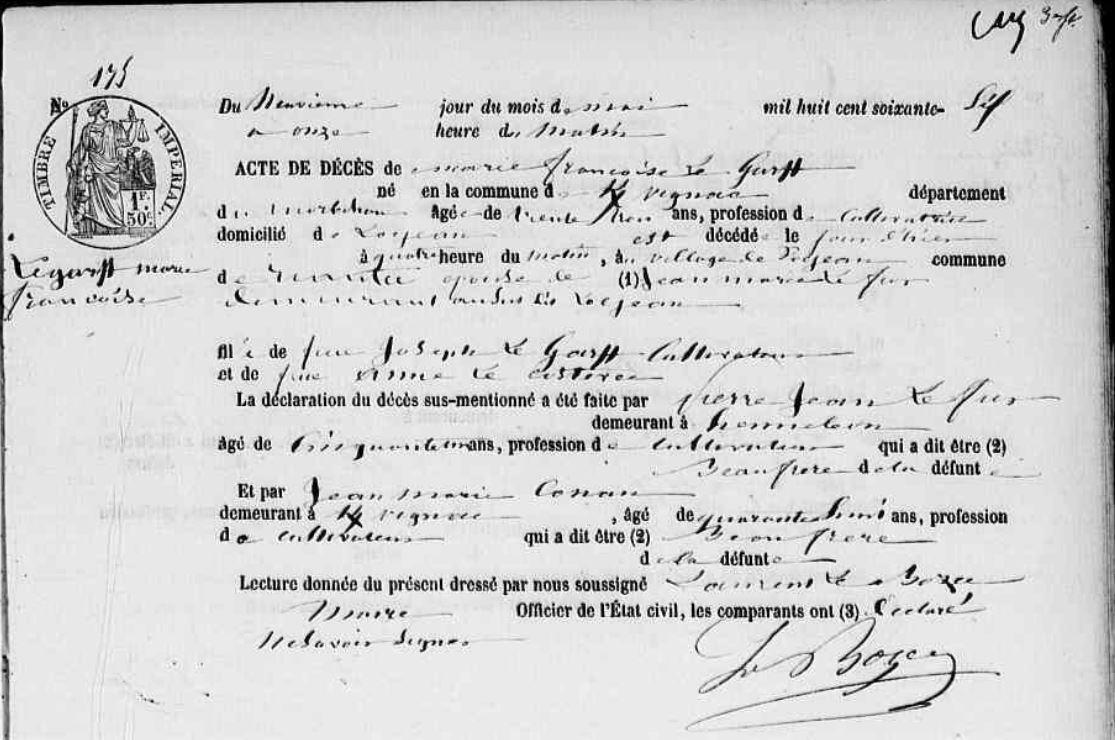 175
Nº
TIMBRE IMPERIAL
1F.
50c
Du Neuvieme jour du mois de mai mil huit cent soixante- Sept
a onze heure du Matin
ACTE DE DÉCÈS de marie françoise Le Garff
né en la commune de département
du morbihan Agée de trente ans, profession de Cultivatrice
domicilié de Locjean est décédée le jour d'hier
à quatre heure du matin, au village de Locjean commune
Legarff marie
francoise
de épouse de (1) Jean marie Le fur
demeurant audit Locjean
fille de feu Joseph Le Garff Cultivateur
et de feue Anne Le
La déclaration du décès sus-mentionné a été faite par pierre Jean Le fur
demeurant à
âgé de ans, profession de Cultivateur qui a dit être (2)
Beaufrere de la défunte
Et par Jean marie Conan
demeurant à , âgé de quarante huit ans, profession
de cultivateur qui a dit être (2) Beaufrere
de la défunte
Lecture donnée du présent dressé par nous soussigné Laurent Le
Maire Officier de l'État civil, les comparants ont (3) Declaré
Ne Savoir Signer